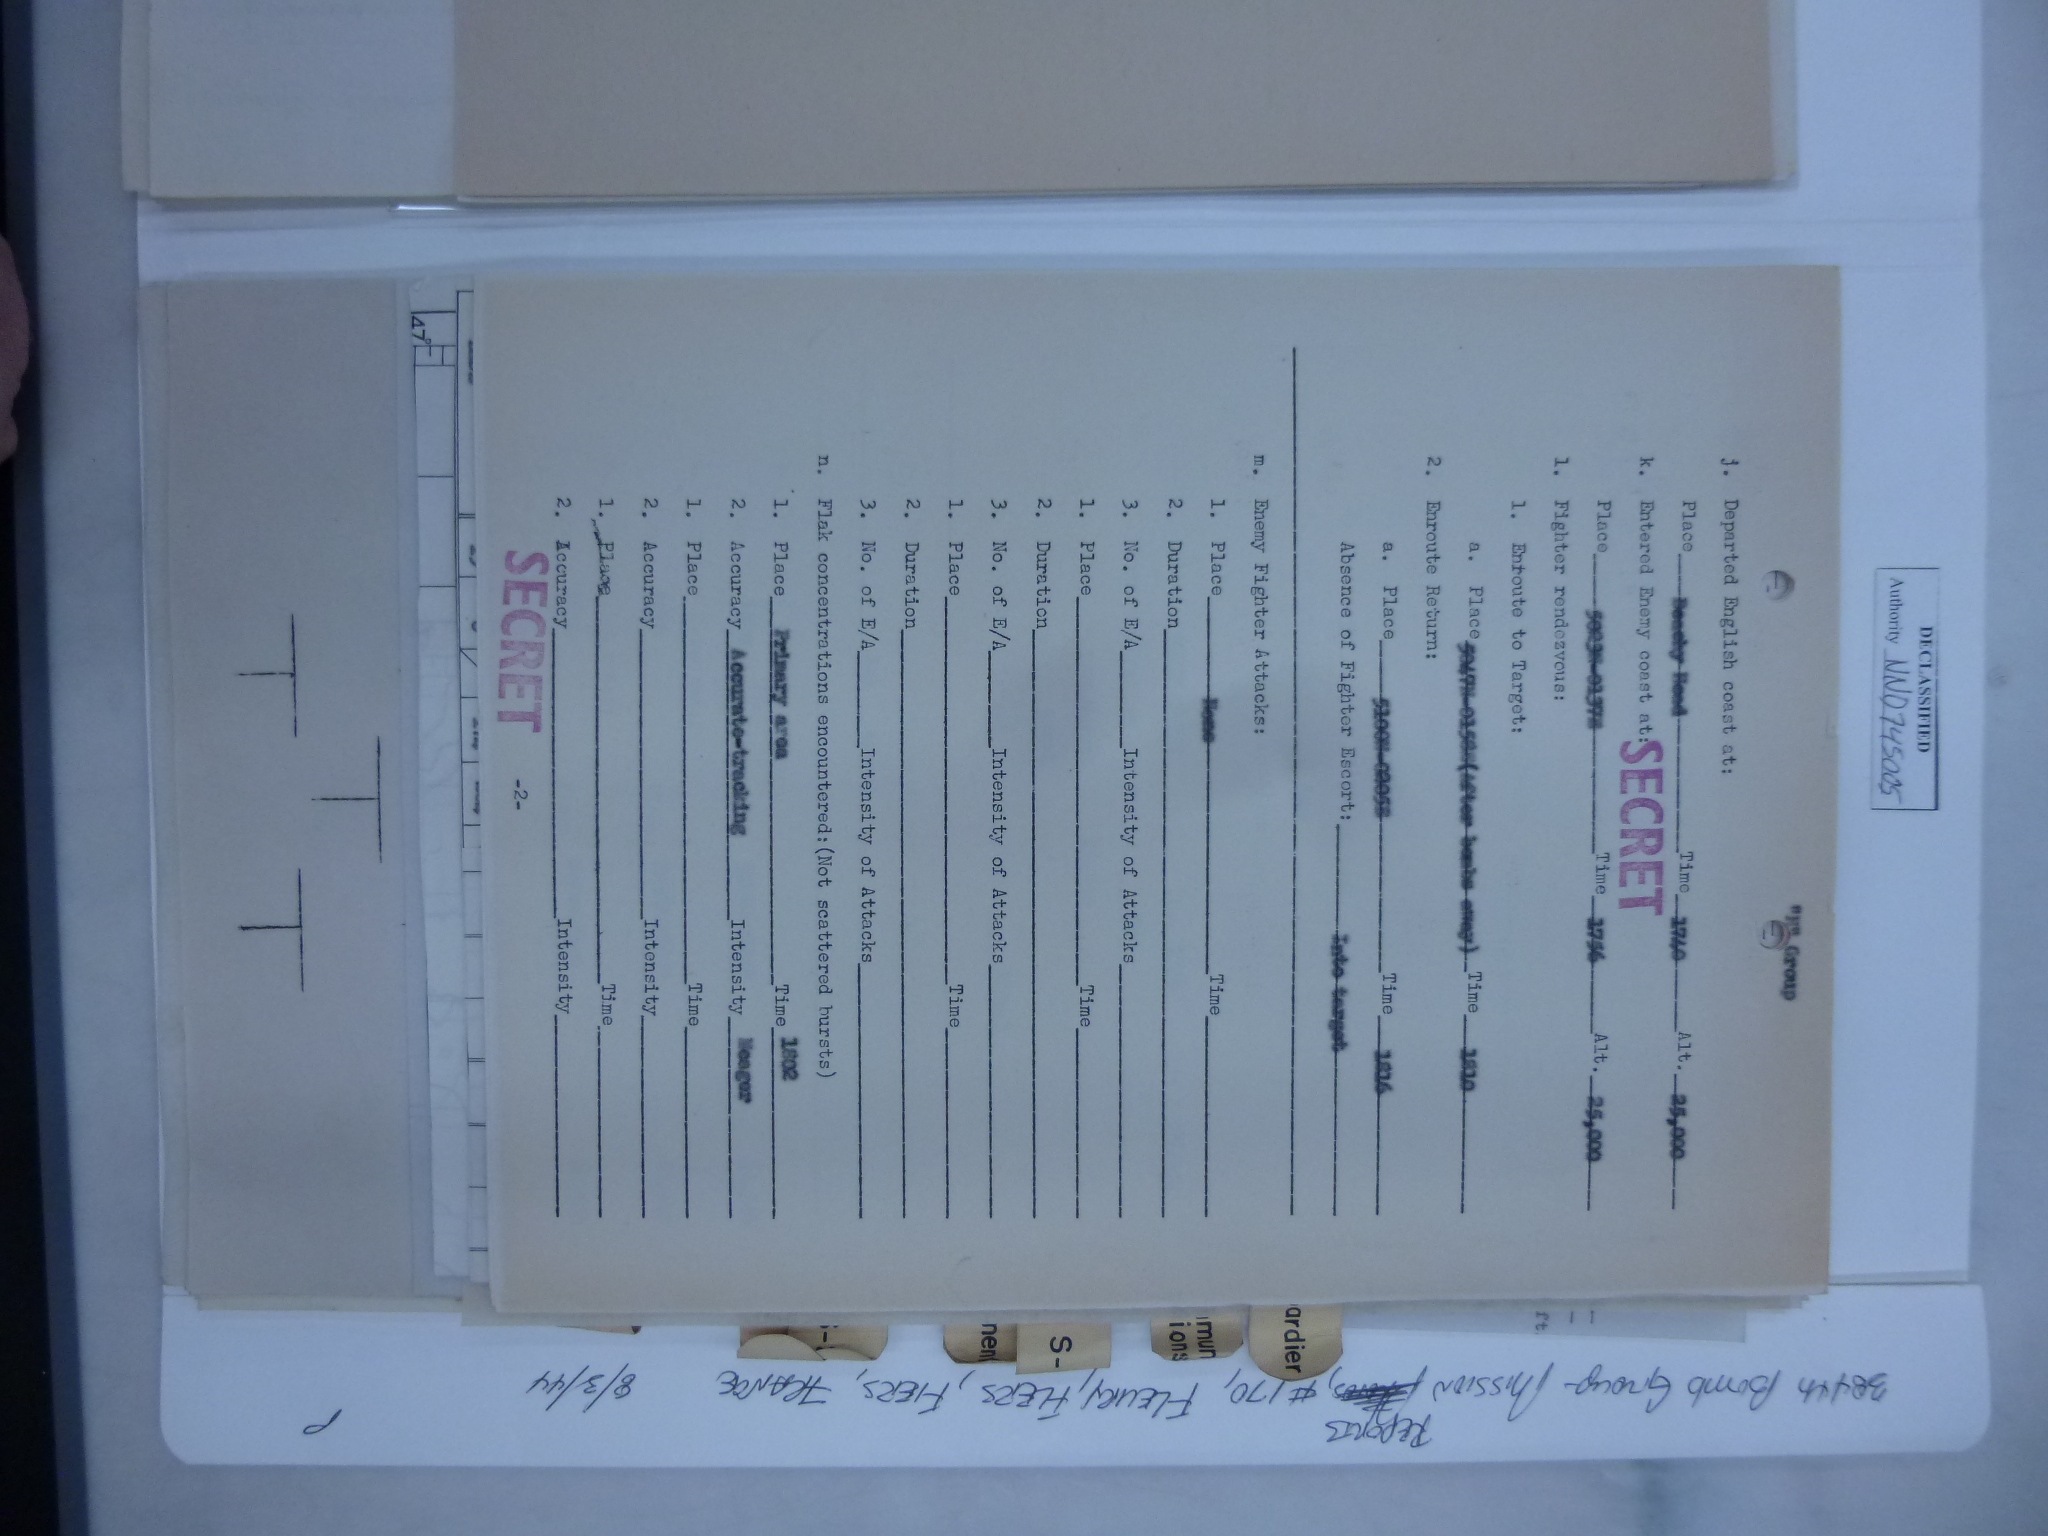 DECLASSIFIED
Authority NND745005
"jys Group
j. Departed English coast at:
Place Beachy Head Time 1740 Alt. 25,000
SECRET
k. Entered Enemy coast at:
Place Time 1756 Alt. 25,000
l. Fighter rendezvous:
1. Enroute to Target:
a. Place (After bombs away) Time 1810
2. Enroute Return:
a. Place Time 1816
Absence of Fighter Escort: Into target
m. Enemy Fighter Attacks:
1. Place None Time
2. Duration
3. No. of E/A Intensity of Attacks
1. Place Time
2. Duration
3. No. of E/A Intensity of Attacks
1. Place Time
2. Duration
3. No. of E/A Intensity of Attacks
n. Flak concentrations encountered:(Not scattered bursts)
1. Place Primary area Time 1802
2. Accuracy Accurate-tracking Intensity Meager
1. Place Time
2. Accuracy Intensity
1. Place Time
2. Accuracy Intensity
SECRET
-2-
47°
ft
ardier
mun
ions
S-
nen
S-
Reports
384th Bomb Group - Mission #170, Fleury, Flers, Flers, France 8/3/44
P